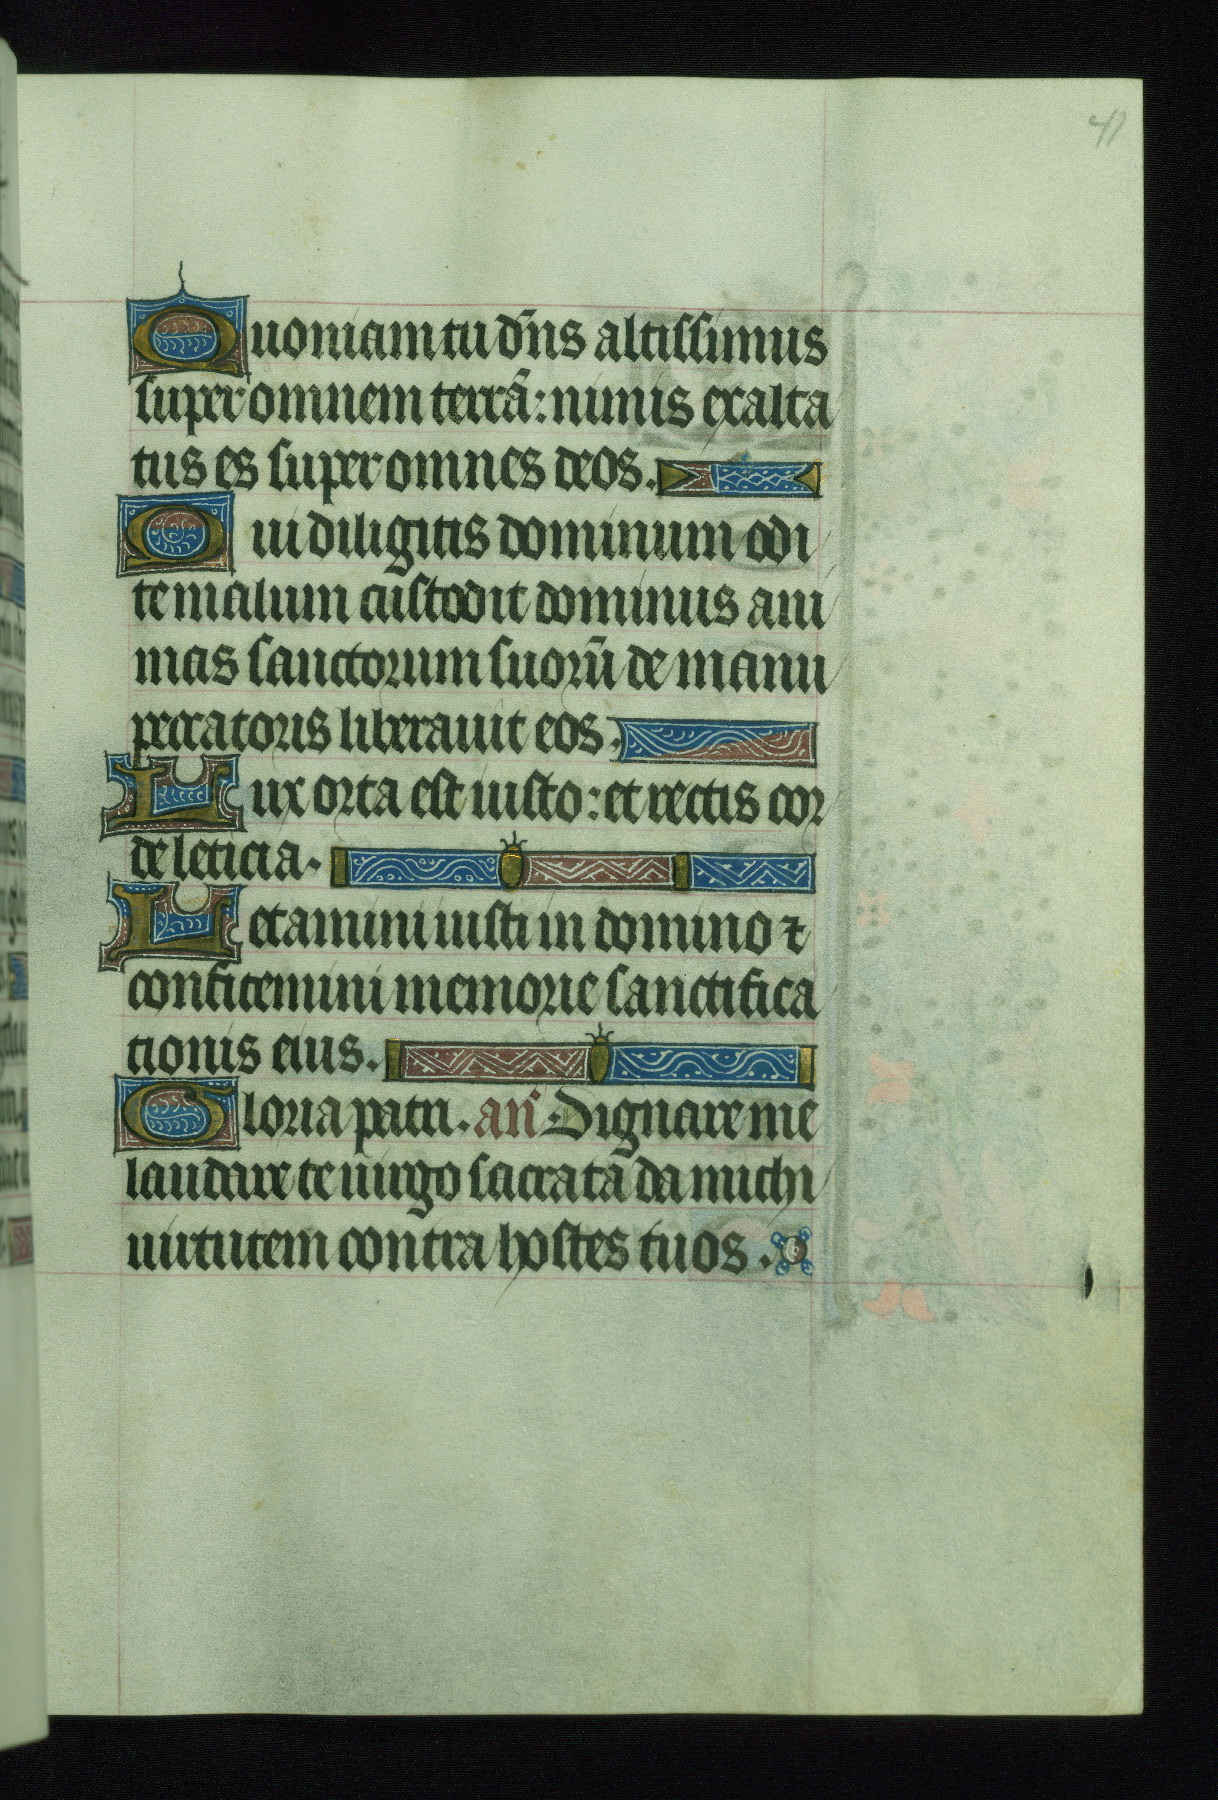 41
Quoniam tu dn̄s altissimus
super omnem terrā: nimis exalta
tus es super omnes deos.
Qui diligitis dominum odi
te malum custodit dominus ani
mas sanctorum suorū de manu
peccatoris liberauit eos.
Lux orta est iusto: et rectis cor
de leticia.
Letamini iusti in domino ⁊
confitemini memorie sanctifica
tionis eius.
Gloria patri. an̄ Dignare me
laudare te uirgo sacrata da michi
uirtutem contra hostes tuos.